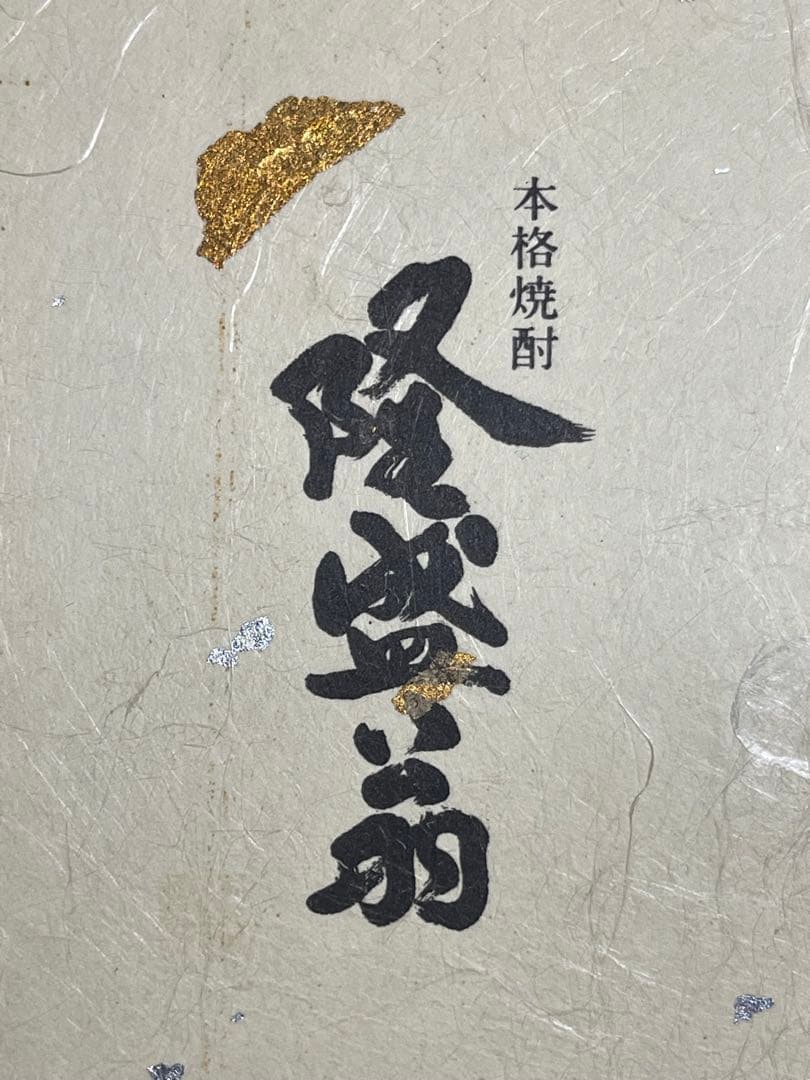 本格焼酎
隆盛翁